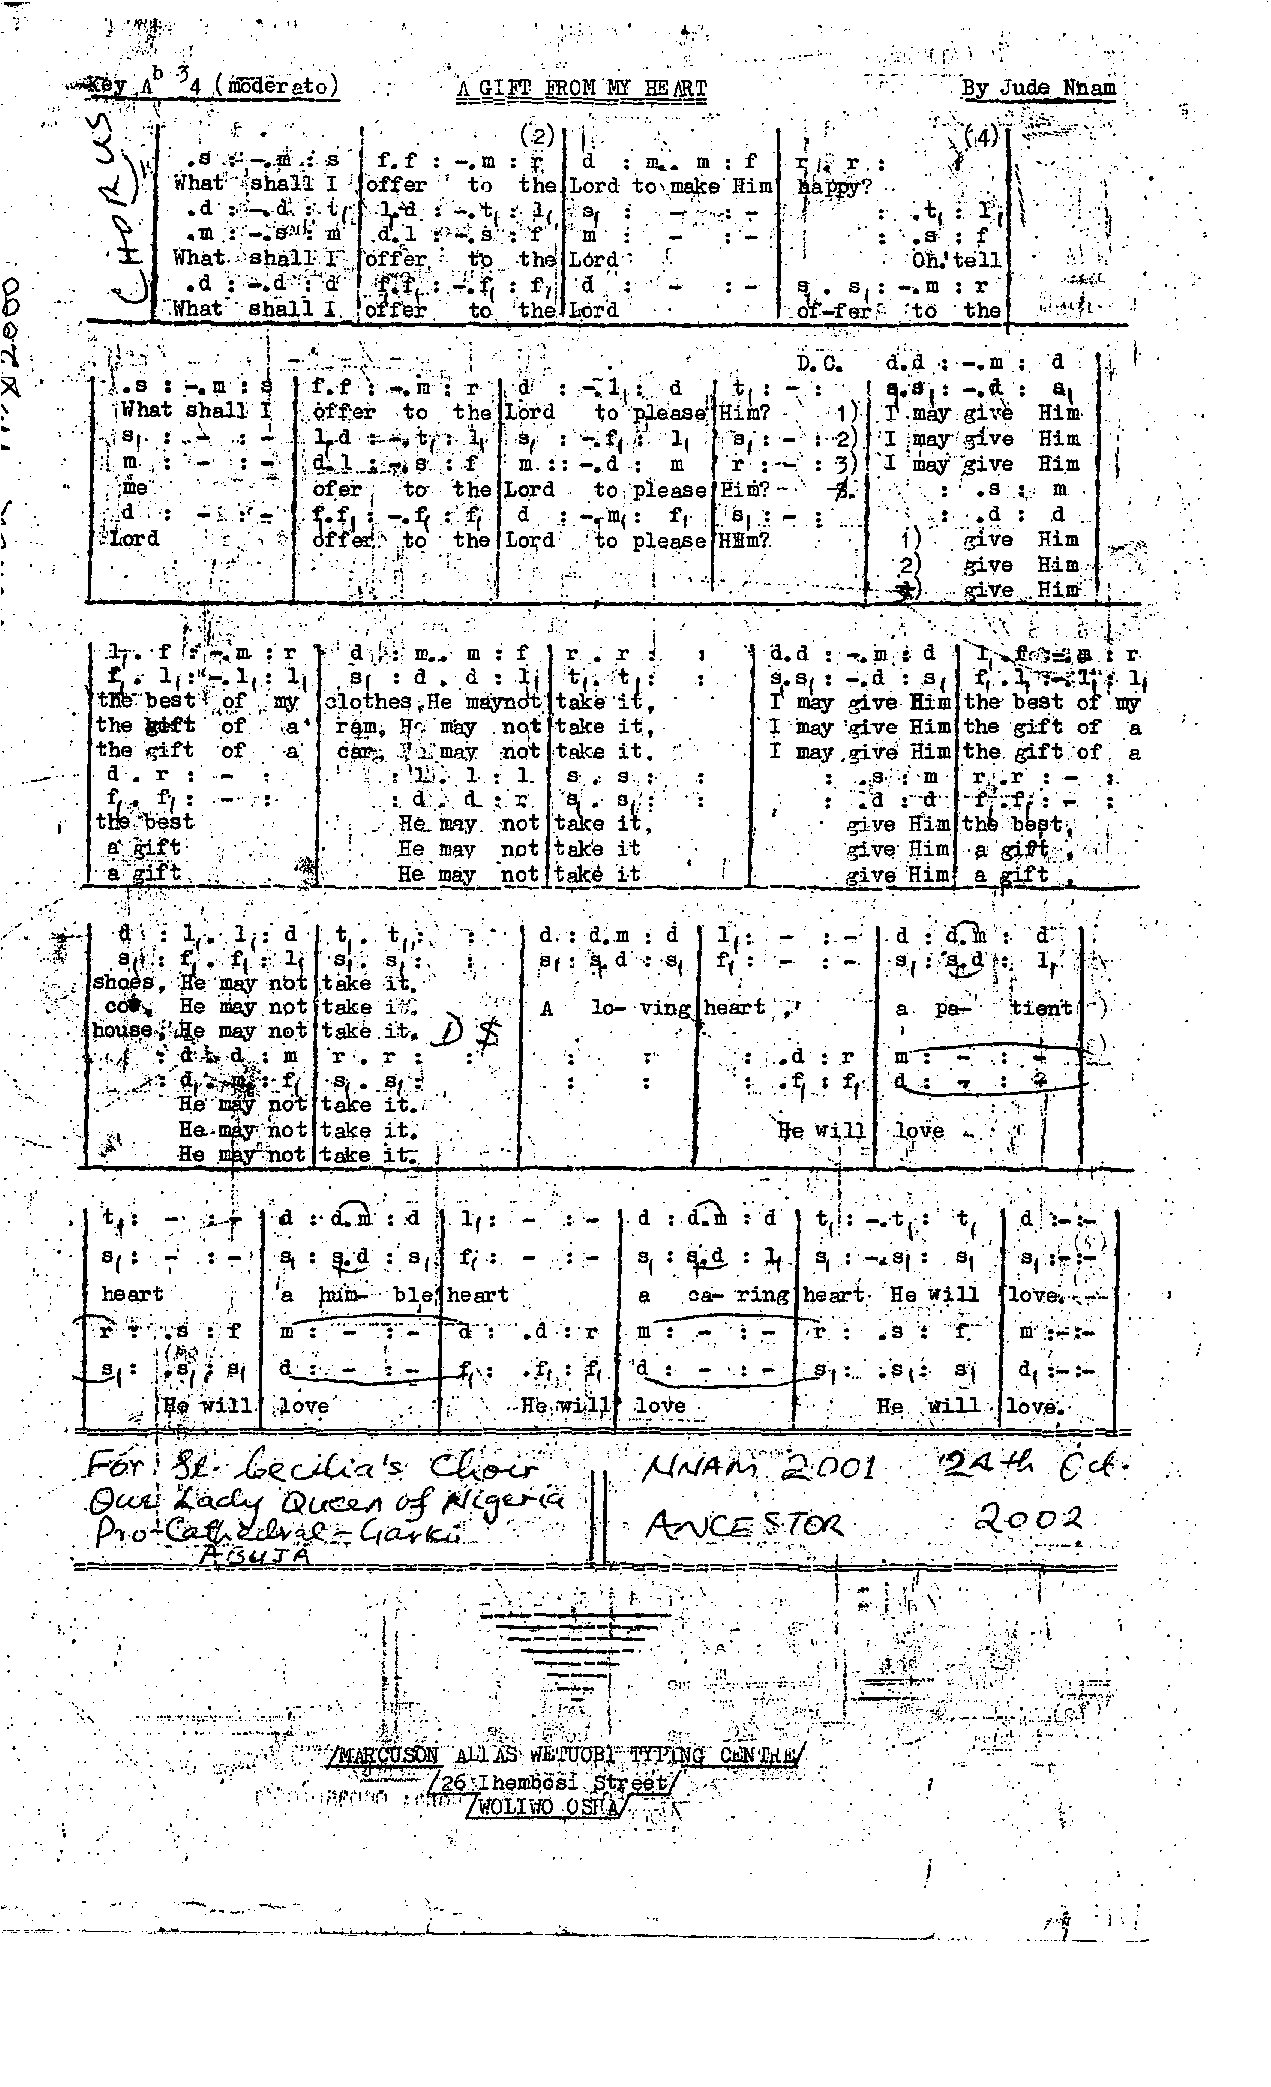 Key A b 3 4 (moderato) A GIFT FROM MY HEART By Jude Nnam
CHORUS
(2) (4)
.s : -.m : s f.f : -.m : r d : m.. m : f r . r :
What shall I offer to the Lord to make Him happy?
.d : -.d : t, l.d : -.t, : l, s, : - : - : .t, : l,
.m : -.s : m d.l : -.s : f m : - : - : .s : f
What shall I offer to the Lord Oh tell
.d : -.d : d f.f, : -.f, : f, d : - : - s . s, : -.m : r
What shall I offer to the Lord of-fer to the
D.C. d.d : -.m : d
.s : -.m : s f.f : -.m : r d : -.l, : d t, : - : s.s, : -.d : s,
What shall I offer to the Lord to please Him? 1) I may give Him
s, : - : - l,d : -.t, : l, s, : -.f, : l, s, : - : 2) I may give Him
m : - : - d.l : -.s : f m : : -.d : m r : - : 3) I may give Him
me ofer to the Lord to please Him? : .s : m
d : - : - f.f, : -.f, : f, d : -.m, : f, s, : - : : .d : d
Lord offer to the Lord to please HHm? 1) give Him
2) give Him
give Him
l, . f : -.m : r d : m.. m : f r . r : : d.d : -.m : d l, .f : -.m : r
f, . l, : -.l, : l, s, : d . d : l, t, . t, : : s.s, : -.d : s, f, .l, : -.l, : l,
the best of my clothes,He maynot take it, I may give Him the best of my
the gift of a ram, He may not take it, I may give Him the gift of a
the gift of a car, He may not take it. I may give Him the gift of a
d . r : - : : l . l : l s . s : : : .s : m r .r : - :
f, . f, : - : : d . d : r s . s, : : : .d : d f, .f, : - :
the best He may not take it, give Him the best,
a gift He may not take it give Him a gift ,
a gift He may not take it give Him a gift ,
d : l, . l, : d t, . t, : : d : d.m : d l, : - : - d : d.m : d
s, : f, . f, : l, s, . s, : : s, : s.d : s, f, : - : - s, : s.d : l,
shoes, He may not take it.
cot, He may not take it. A lo- ving heart , a pa- tient
house, He may not take it. D $
: d . d : m r . r : : : : : .d : r m : - : -
: d, . m, : f, s, . s, : : : : .f, : f, d : - : -
He may not take it.
He may not take it. He will love
He may not take it.
t, : - : - d : d.m : d l, : - : - d : d.m : d t, : -.t, : t, d : - : -
s, : - : - s, : s.d : s, f, : - : - s, : s.d : l, s, : -.s, : s, s, : - : -
heart a hum- ble heart a ca- ring heart He will love.
r : .s : f m : - : - d : .d : r m : - : - r : .s : f m : - : -
s, : .s, : s, d : - : - f, : .f, : f, d : - : - s, : .s, : s, d, : - : -
He will love He will love He will love.
For St. Cecilia's Choir NNAM 2001 24th Oct.
Our Lady Queen of Nigeria
Pro-Cathedral - Garki ANCESTOR 2002
ABUJA
/MARCUSON ALIAS WETUOBI TYPING CENTRE/
/26 Ihembosi Street/
/WOLIWO OSHA/